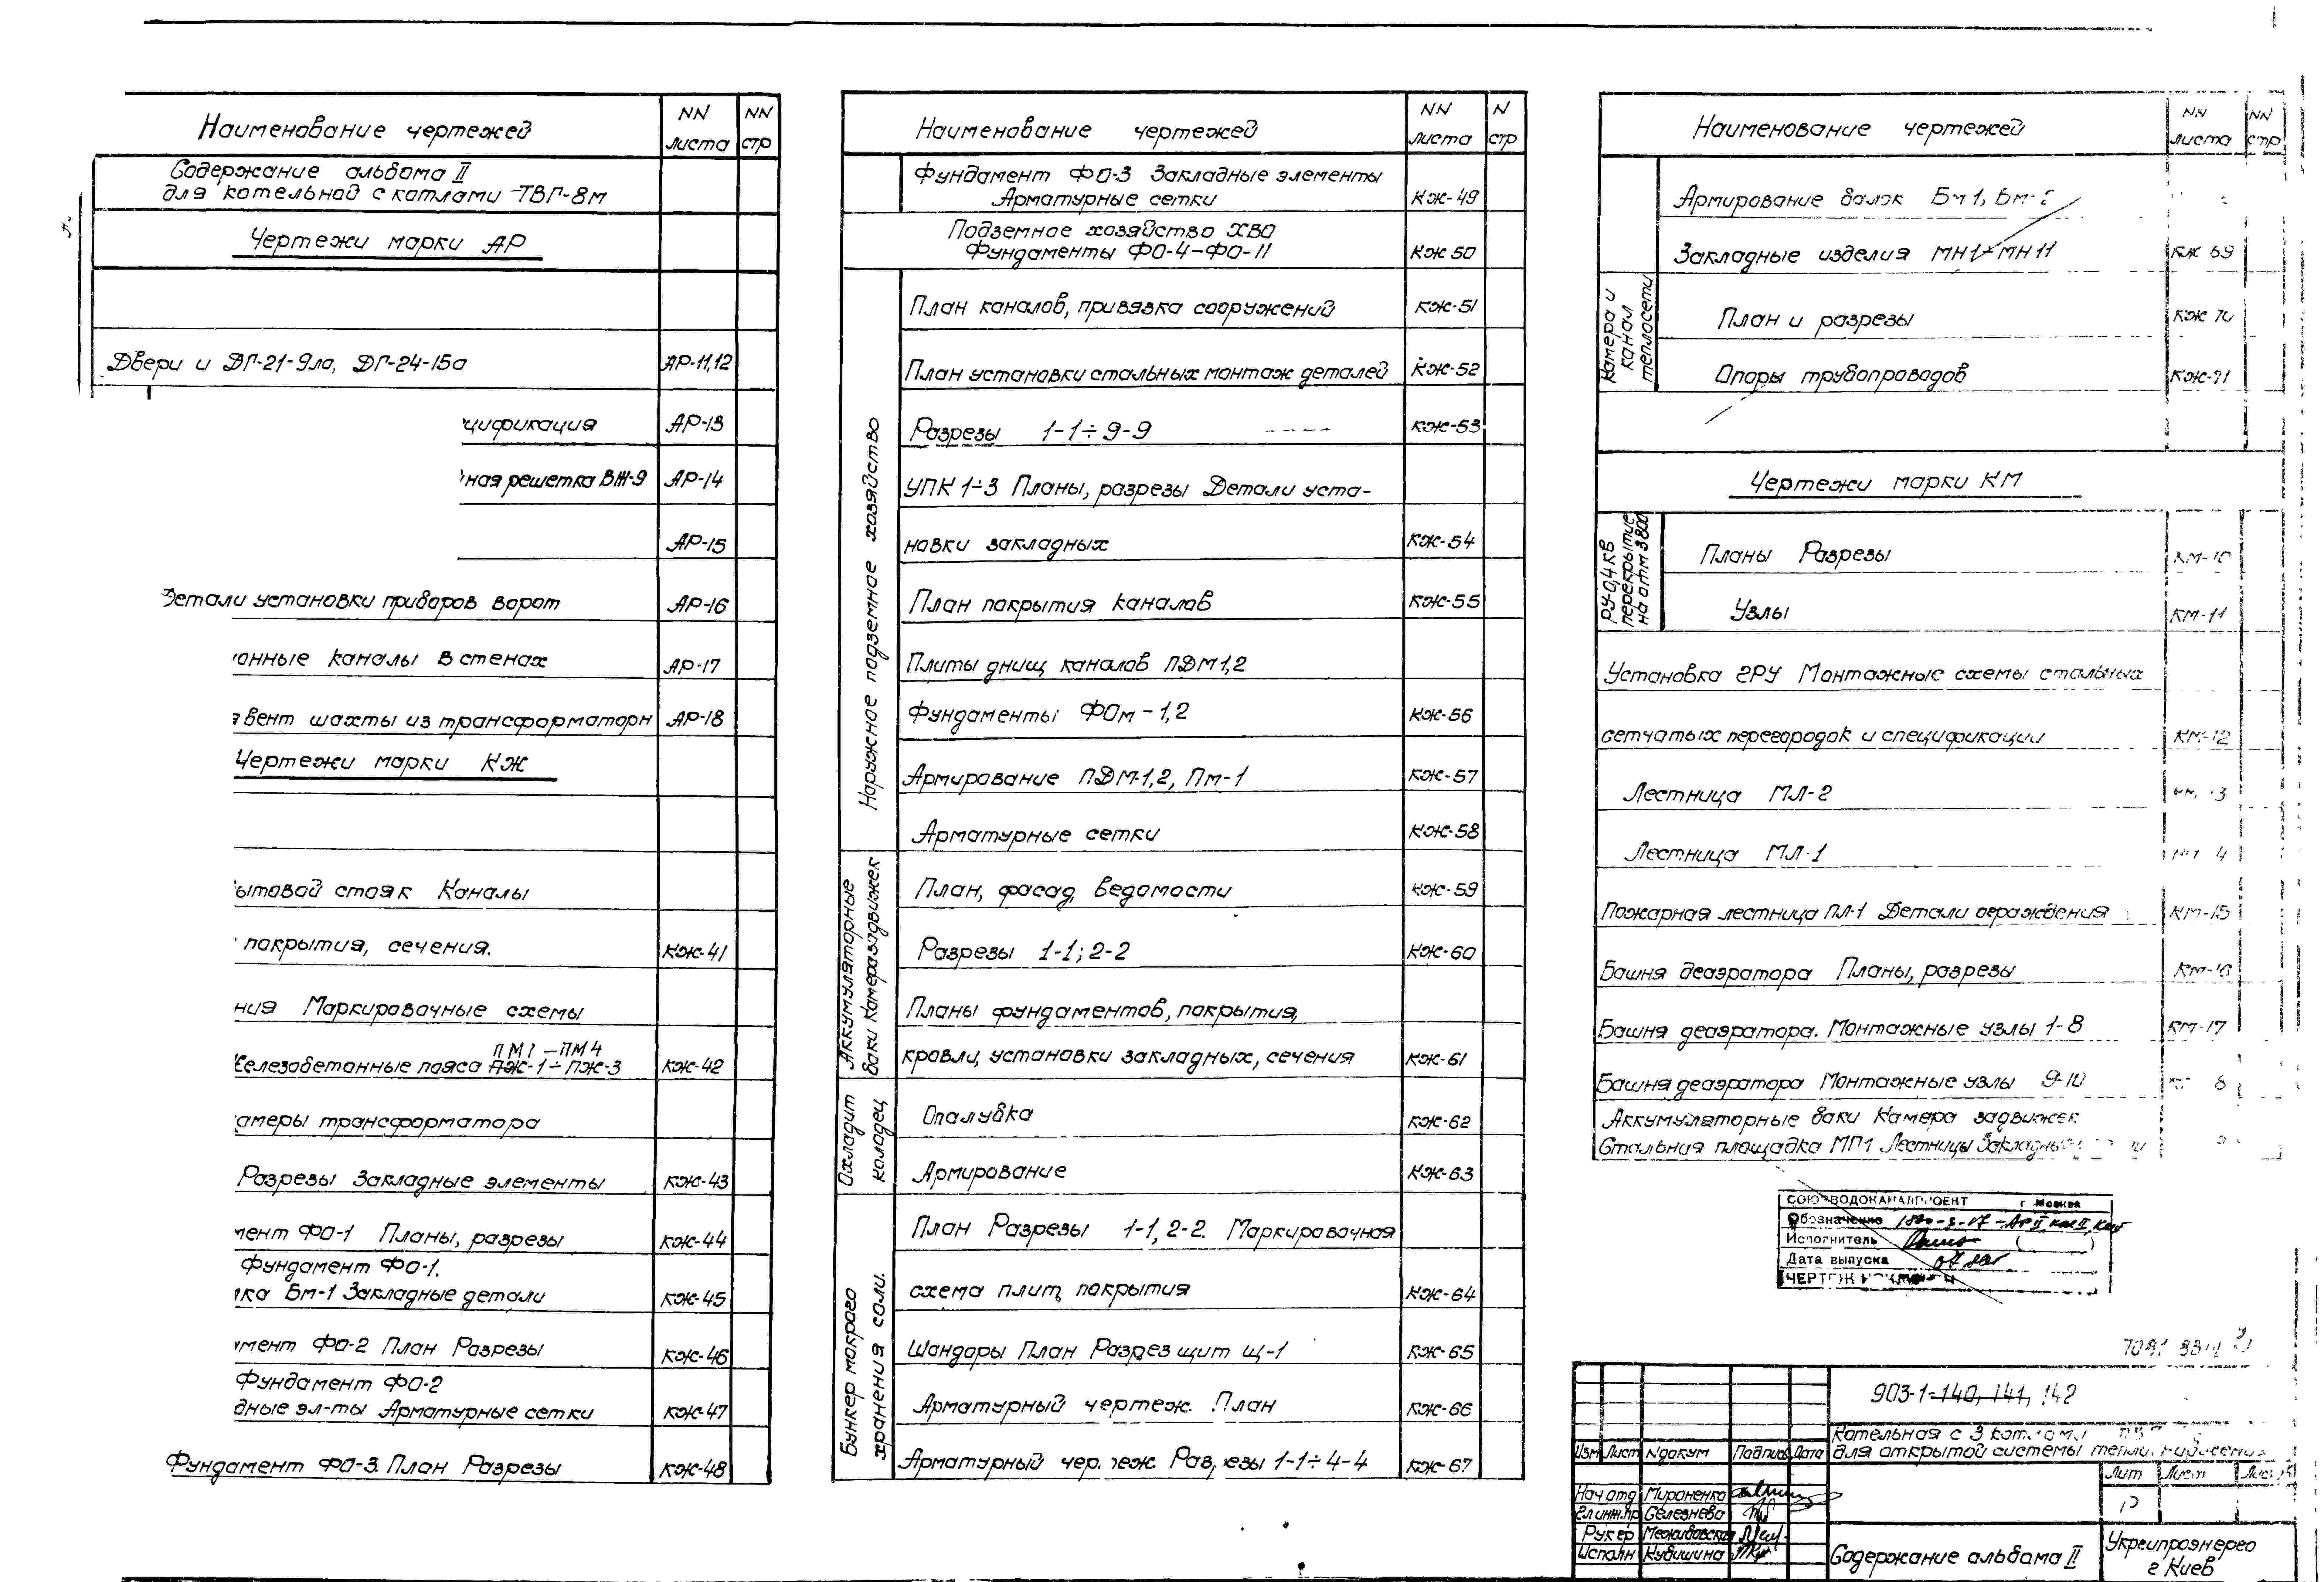 Наименование чертежей NN листа NN стр
Содержание альбома II
для котельной с котлами ТВГ-8м
Чертежи марки АР
Двери и ДГ-21-9ло, ДГ-24-15а АР-11,12
цификация АР-13
ная решетка ВЖ-9 АР-14
АР-15
Детали установки приборов ворот АР-16
онные каналы в стенах АР-17
вент шахты из трансформаторн АР-18
Чертежи марки КЖ
ытовой стояк Каналы
покрытия, сечения. КЖ-41
ния Маркировочные схемы
ПМ1-ПМ4
Железобетонные пояса ПЖ-1÷ПЖ-3 КЖ-42
амеры трансформатора
Разрезы Закладные элементы КЖ-43
мент ФО-1 Планы, разрезы КЖ-44
Фундамент ФО-1.
ка Бм-1 Закладные детали КЖ-45
мент ФО-2 План Разрезы КЖ-46
Фундамент ФО-2
дные эл-ты Арматурные сетки КЖ-47
Фундамент ФО-3. План Разрезы КЖ-48
Наименование чертежей NN листа N стр
Фундамент ФО-3 Закладные элементы
Арматурные сетки КЖ-49
Подземное хозяйство ХВО
Фундаменты ФО-4-ФО-11 КЖ 50
Наружное подземное хозяйство
План каналов, привязка сооружений КЖ-51
План установки стальных монтаж деталей КЖ-52
Разрезы 1-1÷9-9 КЖ-53
УПК 1÷3 Планы, разрезы Детали уста-
новки закладных КЖ-54
План покрытия каналов КЖ-55
Плиты днищ каналов ПДМ1,2
Фундаменты ФОм-1,2 КЖ-56
Армирование ПДМ-1,2, Пм-1 КЖ-57
Арматурные сетки КЖ-58
Аккумуляторные
баки Камера задвижек
План, фасад, ведомости КЖ-59
Разрезы 1-1; 2-2 КЖ-60
Планы фундаментов, покрытия,
кровли, установки закладных, сечения КЖ-61
Охладит
колодец
Опалубка КЖ-62
Армирование КЖ-63
Бункер мокрого
хранения соли.
План Разрезы 1-1, 2-2. Маркировочная
схема плит, покрытия КЖ-64
Шандоры План Разрез щит Щ-1 КЖ-65
Арматурный чертеж. План КЖ-66
Арматурный чертеж Разрезы 1-1÷4-4 КЖ-67
Наименование чертежей NN листа NN стр
Армирование балок Бм1, Бм-2
Закладные изделия МН1÷МН11 КЖ 69
Камера и
канал
теплосети
План и разрезы КЖ 70
Опоры трубопроводов КЖ-71
Чертежи марки КМ
РУ-0,4кВ
перекрытие
на отм 3800
Планы Разрезы КМ-10
Узлы КМ-11
Установка ГРУ Монтажные схемы стальных
сетчатых перегородок и спецификации КМ-12
Лестница МЛ-2
Лестница МЛ-1
Пожарная лестница ПЛ-1 Детали ограждения КМ-15
Башня деаэратора Планы, разрезы КМ-16
Башня деаэратора. Монтажные узлы 1-8 КМ-17
Башня деаэратора Монтажные узлы 9-10
Аккумуляторные баки Камера задвижек
Стальная площадка МП1 Лестницы Закладные
СОЮЗВОДОКАНАЛПРОЕКТ г Москва
Обозначение
Исполнитель
Дата выпуска
903-1-140, 141, 142
Котельная с 3 котлами
для открытой системы теплоснабжения
Изм Лист N докум Подпись Дата
Лит Лист
Р
Нач отд Мироненко
Гл инж.пр Селезнева
Рук ер
Исполн Кубишина
Содержание альбома II
Укргипроэнерго
г Киев